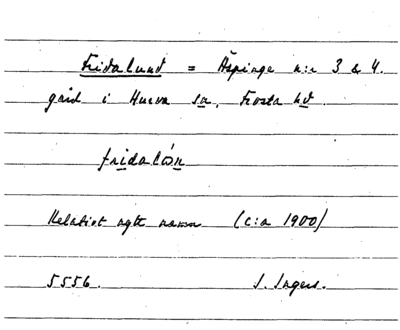 Fridalund = Äspinge n:r 3 & 4.
gård i Hurva sn, Frosta hd.
fridalón
Relativt nytt namn (c:a 1900)
5556. S. Ingers.